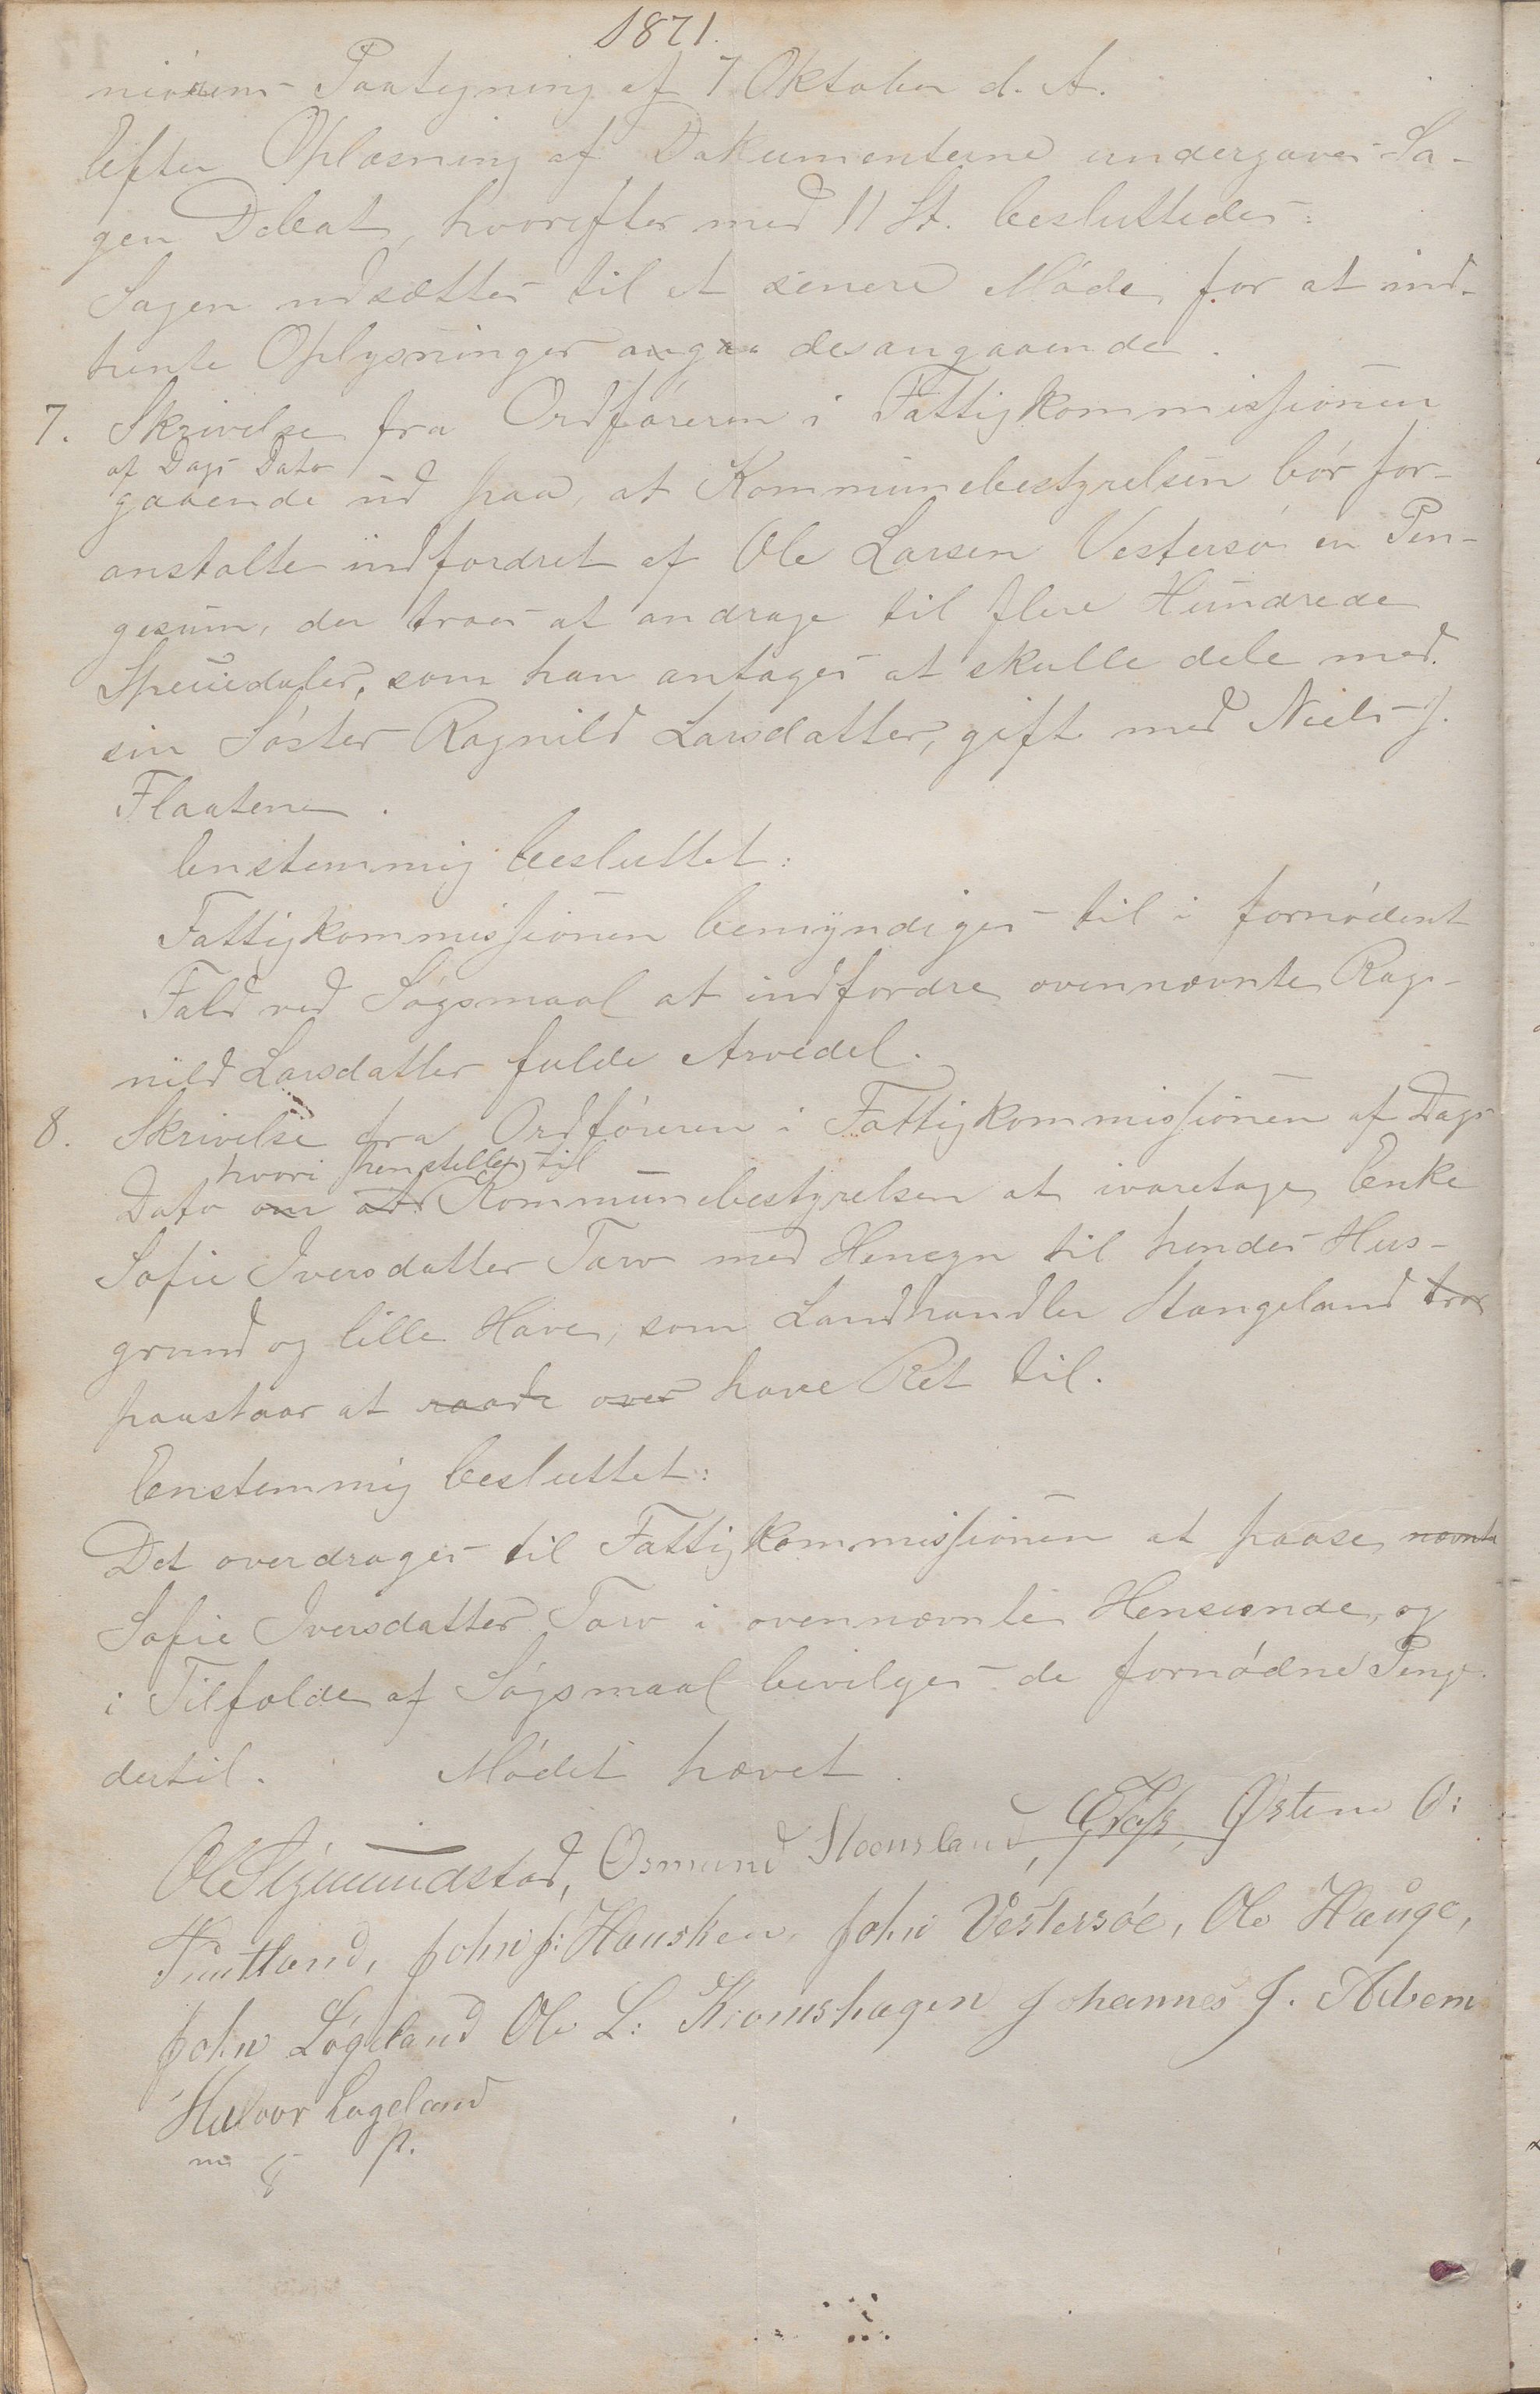 1871.
Paategning af 7 Oktober d. A.
Efter Oplæsning af Dokumenterne undergaves Sa-
gen Debat, hvorefter med 11 St. besluttedes:
Sagen udsættes til et senere Møde for at ind-
hente Oplysninger angaa desangaaende.
7. Skrivelse fra Ordføreren i Fattigkommissionen
af Dags Dato
gaaende ud paa, at Kommunebestyrelsen bør for-
anstalte indfordret af Ole Larsen Vestersø en Pen-
gesum, der troes at andrage til flere Hundrede
Speciedaler, som han antages at skulle dele med
sin Søster Ragnild Larsdatter, gift med Niels J.
Flaatene.
Enstemmig besluttet:
Fattigkommissionen bemyndiges til i fornødent
Fald ved Søgsmaal at indfordre ovennævnte Rag-
nild Larsdatter fulde Arvedel.
8. Skrivelse fra Ordføreren i Fattigkommissionen af Dags
hvori henstilles til
Dato om at Kommunebestyrelsen at ivaretage Enke
Sofie Iversdatter Tarv med Hensyn til hendes Hus-
grund og lille Have, som Landhandler Stangeland tror
paastaar at raade over have Ret til.
Enstemmig besluttet:
Det overdrages til Fattigkommissionen at paase nævnte
Sofie Iversdatter Tarv i ovennævnte Henseende, og
i Tilfælde af Søgsmaal bevilges de fornødne Penge
dertil. Mødet hævet.
O Sigmundstad, Osmund Stoensland, Østen O:
Tuntland, John J: Hausken, John Vestersøe, Ole Hauge,
John Løgeland Ole L: Kromshagen Johannes J. Aabem
Halvor Lageland
m. p.